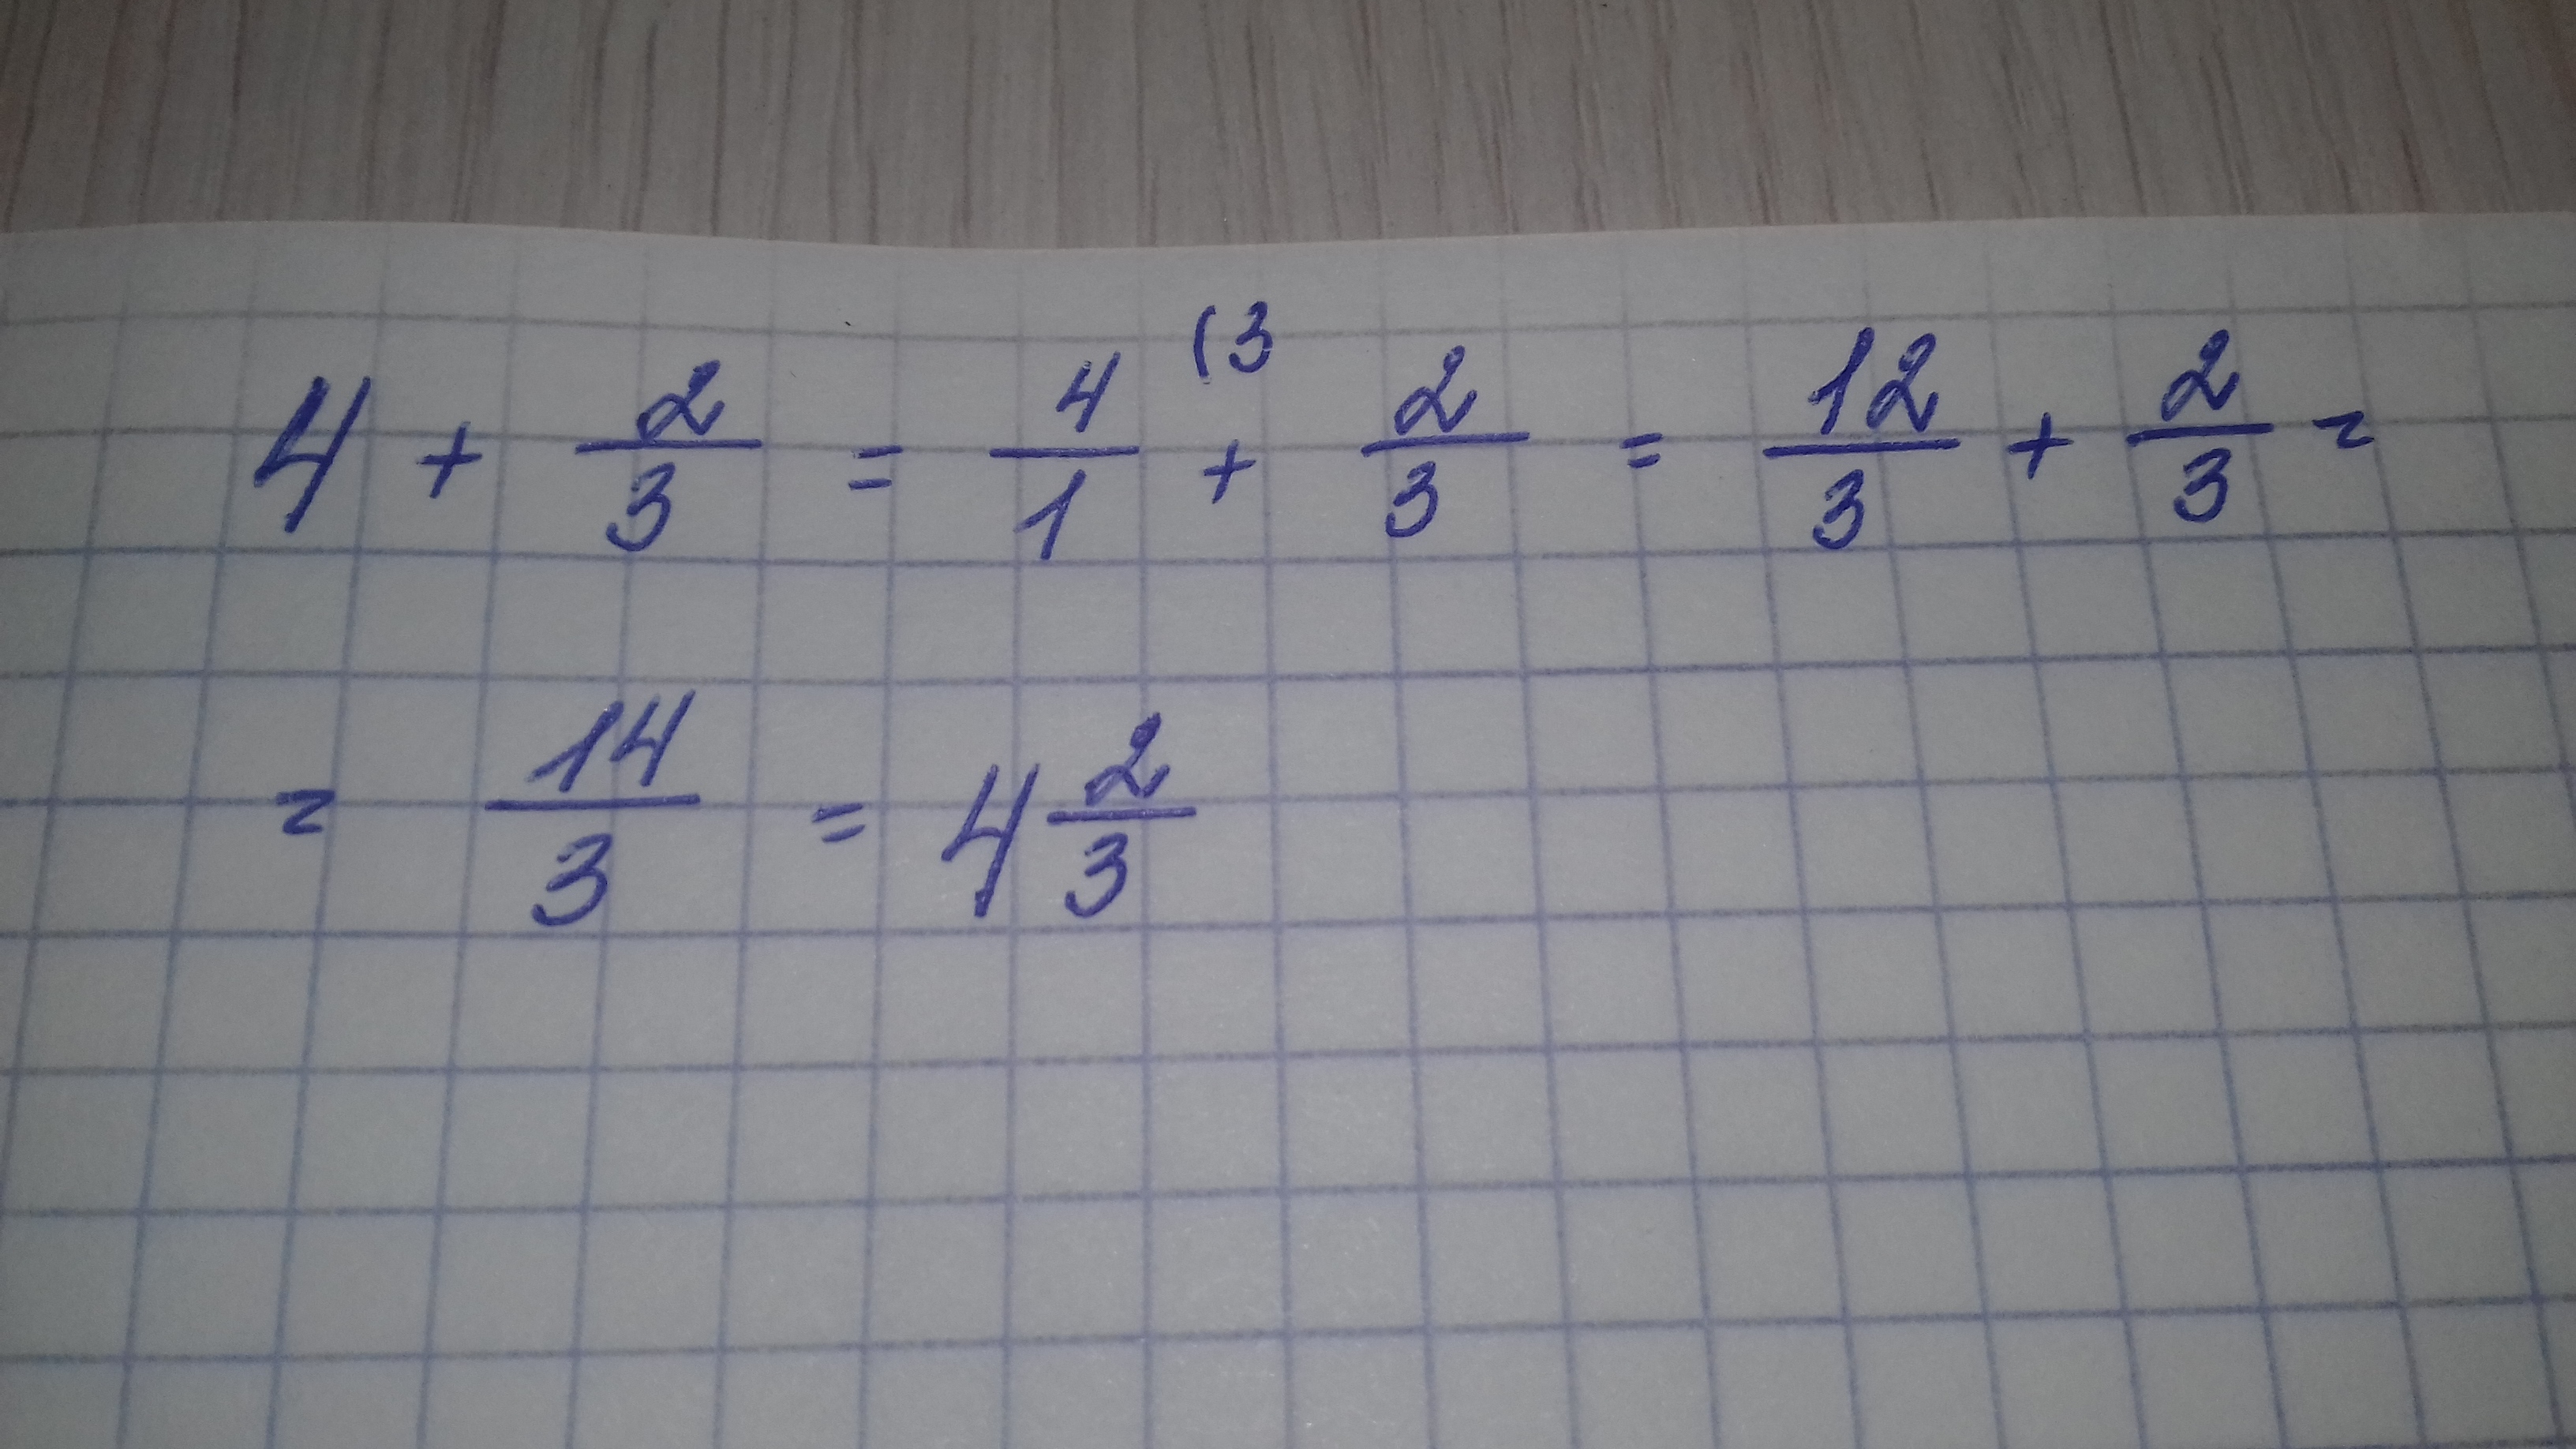 4 + 2/3 = 4/1 (3 + 2/3 = 12/3 + 2/3 =
= 14/3 = 4 2/3